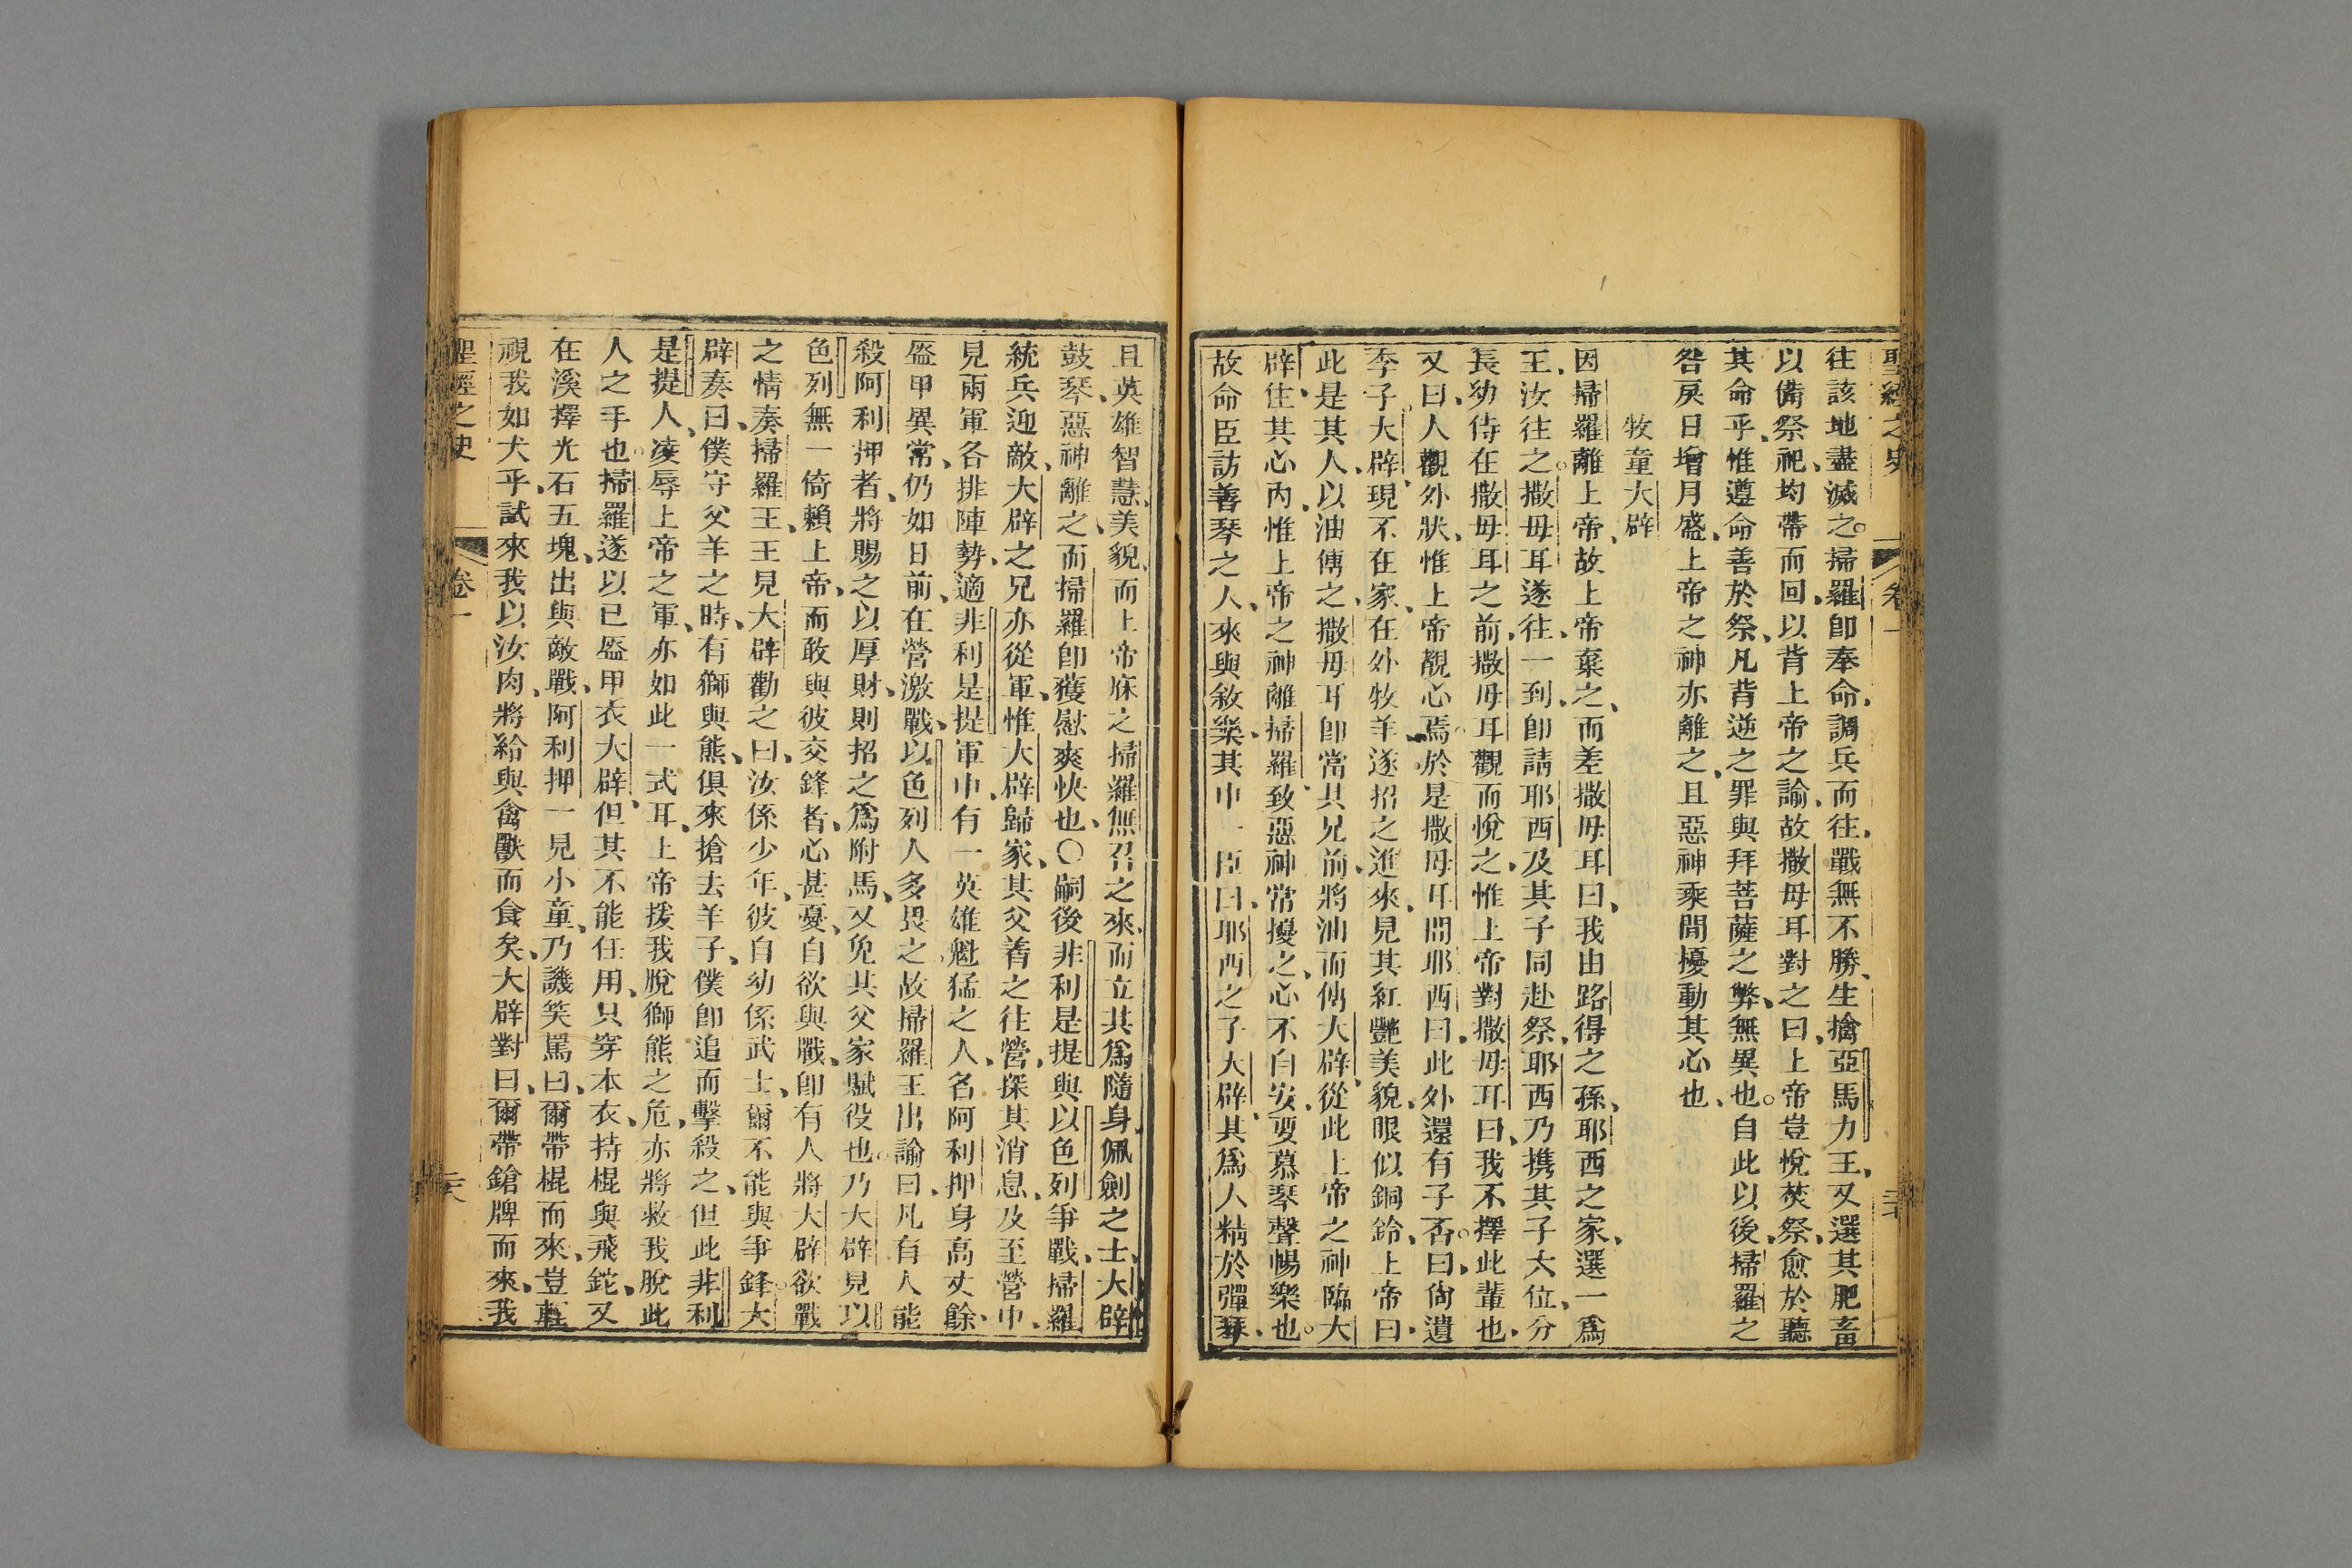 聖經之史 卷一
往該地盡滅之。掃羅卽奉命、調兵而往、戰無不勝、生擒亞馬力王、又選其肥畜
以備祭祀、均帶而回、以背上帝之諭、故撒母耳對之曰、上帝豈悅焚祭、愈於聽
其命乎、惟遵命善於祭、凡背逆之罪與拜菩薩之弊、無異也。自此以後、掃羅之
咎戾日增月盛、上帝之神亦離之、且惡神乘間擾動其心也、
牧童大辟
因掃羅離上帝、故上帝棄之、而差撒母耳曰、我由路得之孫、耶西之家、選一爲
王、汝往之。撒母耳遂往、一到、卽請耶西及其子同赴祭、耶西乃携其子大位、分
長幼待在撒母耳之前、撒母耳觀而悅之、惟上帝對撒母耳曰、我不擇此輩也、
又曰、人觀外狀、惟上帝覩心焉。於是撒母耳問耶西曰、此外還有子否。曰、尙遺
季子大辟、現不在家、在外牧羊、遂招之進來、見其紅艷美貌、眼似銅鈴、上帝曰、
此是其人、以油傅之、撒母耳卽當其兄前、將油而傅大辟、從此上帝之神臨大
辟、住其心內、惟上帝之神離掃羅、致惡神常擾之、心不自安、要慕琴聲暢樂也。
故命臣訪善琴之人、來與敘樂、其中一臣曰、耶西之子大辟、其爲人精於彈琴、
且英雄智慧、美貌、而上帝庥之、掃羅無召之來、而立其爲隨身佩劍之士、大辟
鼓琴、惡神離之、而掃羅卽獲慰爽快也、〇嗣後非利是提與以色列爭戰、掃羅
統兵迎敵、大辟之兄亦從軍、惟大辟歸家、其父着之往營、探其消息、及至營中、
見兩軍各排陣勢、適非利是提軍中、有一英雄魁猛之人、名阿利押、身高丈餘、
盔甲異常、仍如日前、在營激戰、以色列人多畏之。故掃羅王出諭曰、凡有人能
殺阿利押者、將賜之以厚財、則招之爲附馬、又免其父家賦役也。乃大辟見以
色列無一倚賴上帝、而敢與彼交鋒者、心甚憂、自欲與戰、卽有人將大辟欲戰
之情奏掃羅王、王見大辟勸之曰、汝係少年、彼自幼係武士、爾不能與爭鋒。大
辟奏曰、僕守父羊之時、有獅與熊、俱來搶去羊子、僕卽追而擊殺之、但此非利
是提人、凌辱上帝之軍、亦如此一式耳、上帝援我脫獅熊之危、亦將救我脫此
人之手也。掃羅遂以已盔甲衣大辟、但其不能任用、只穿本衣、持棍與飛鉈、又
在溪擇光石五塊、出與敵戰、阿利押一見小童、乃譏笑罵曰、爾帶棍而來、豈輕
視我如犬乎、試來我以汝肉、將給與禽獸而食矣、大辟對曰、爾帶鎗牌而來、我
聖經之史 卷一 二十六